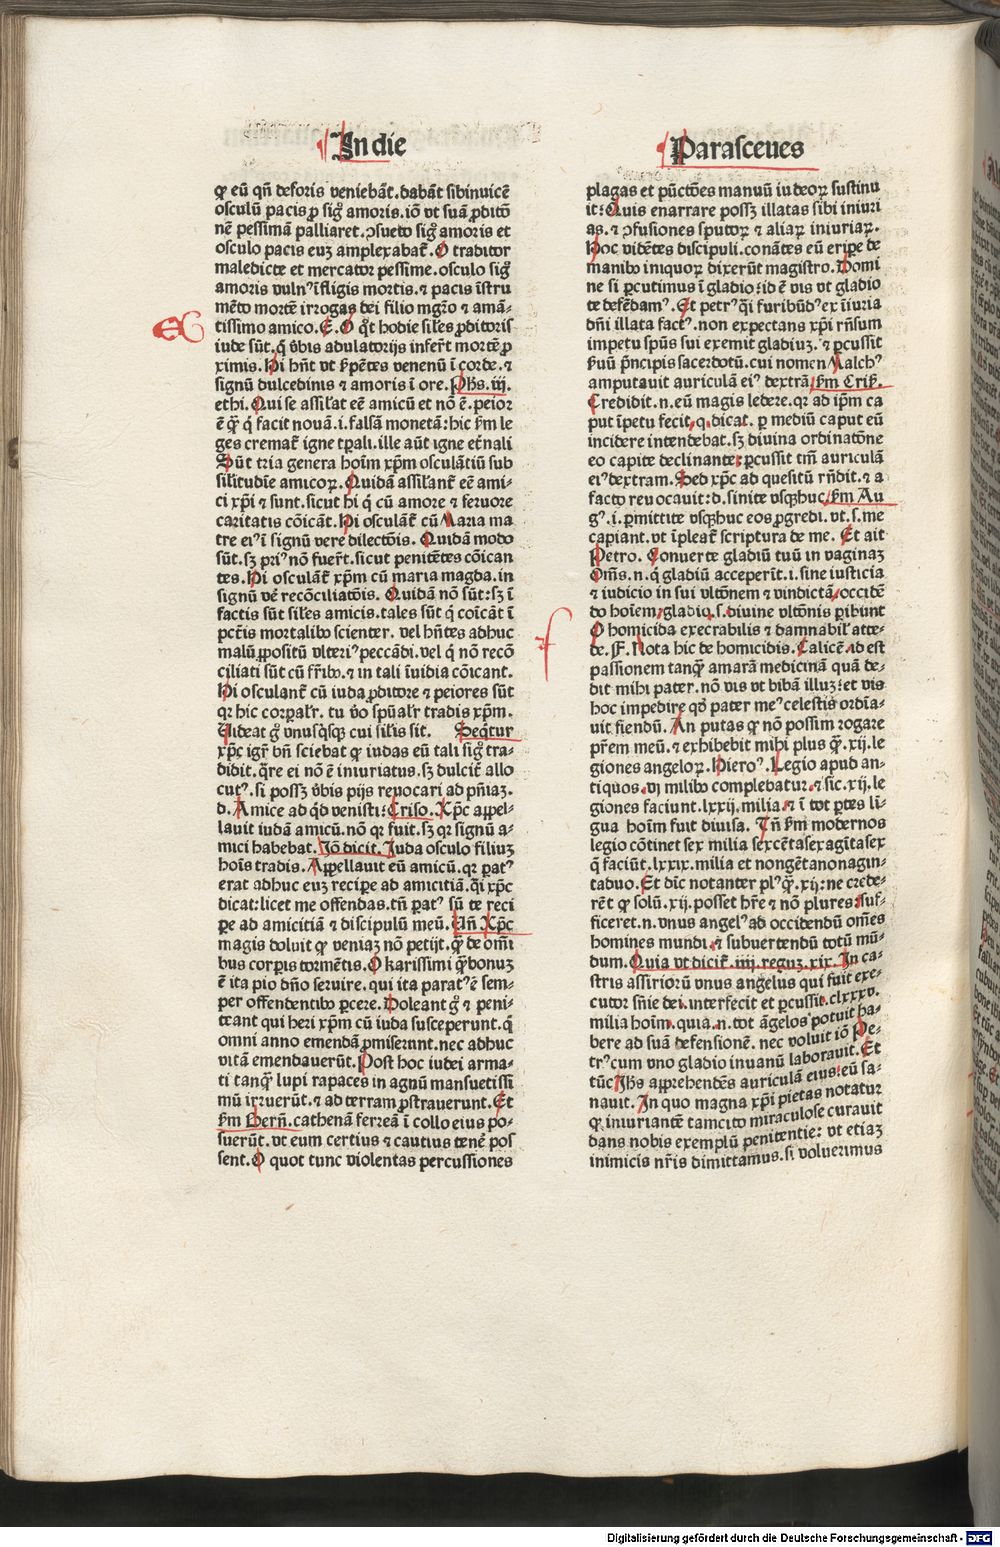 In die
Parasceues
ꝙ eū qn̄ deforis veniebāt. dabāt sibinuicē
osculū pacis ꝓ sigͦ amoris. iō vt suā ꝓditō
nē pessimā palliaret. ꝯsueto sigͦ amoris et
osculo pacis euꝫ amplexabat̄. O traditor
maledicte et mercator pessime. osculo sigͦ
amoris vulnꝰ ĩfligis mortis. ⁊ pacis ĩstru
mēto mortē irrogas dei filio mgr̄o ⁊ amā-
tissimo amico. E. O qͦt hodie siles ꝓditoris
iude sūt. q̄ v̄bis adulatorijs infer̄t mortē ꝓ
ximis. Hi hn̄t vt s̄pētes venenū ĩ corde. ⁊
signū dulcedinis ⁊ amoris ĩ ore. Phs. iij.
ethi. Qui se assil̄at eē amicū et nō ē. peior
ē qͣꝫ q̄ facit nouā. i. falsā monetā: hic s̄m le
ges cremat̄ igne tꝑali. ille aūt igne et̄nali
Sūt tria genera hoīm xp̄m osculātiū sub
sil̄itudīe amicoꝝ. Quidā assil̄ant̄ eē ami-
ci xp̄i ⁊ sunt. sicut hi q̄ cū amore ⁊ feruore
caritatis cōicāt. Hi osculāt̄ cū Maria ma
tre eiꝰ ĩ signū vere dilectōis. Quidā modo
sūt. sꝫ priꝰ nō fuer̄t. sicut penitētes cōican
tes. Hi osculāt̄ xp̄m cū maria magda. in
signū ve᷒ recōciliatōis. Quidā nō sūt: sꝫ ĩ
factis sūt siles amicis. tales sūt q̄ coīcāt ĩ
pctīs mortalibꝰ scienter. vel hn̄tes adhuc
malū ꝓpositū vlteriꝰ peccādi. vel q̄ nō recō
ciliati sūt cū fr̄ibꝰ. ⁊ in tali ĩuidia cōicant.
Hi osculant̄ cū iuda ꝓditore ⁊ peiores sūt
qꝛ hic corꝑal'r. tu v̄o spūal'r tradis xp̄m.
Uideat gͦ vnusqͥsqꝫ cui sil̄is sit. Seqͥtur
xp̄c igr̄ bn̄ sciebat ꝙ iudas eū tali sigͦ tra-
didit. qͣre ei nō ē iniuriatus. sꝫ dulcit̄ allo
cutꝰ. si possꝫ v̄bis pijs reuocari ad pn̄iaꝫ.
d. Amice ad qͥd venisti: Criso. Xp̄c appel-
lauit iudā amicū. nō qꝛ fuit. sꝫ qꝛ signū a-
mici habebat. Iō dicit. Iuda osculo filiuꝫ
hoīs tradis. Appellauit eū amicū. qꝛ patꝰ
erat adhuc euꝫ reciꝑe ad amicitiā. q̄i xp̄c
dicat: licet me offendas. tn̄ patꝰ sū te reci
ꝑe ad amicitiā ⁊ discipulū meū. Uñ. Xp̄c
magis doluit ꝙ veniaꝫ nō petijt. qͣꝫ de om̄i
bus corꝑis tormētis. O karissimi qͣꝫ bonuꝫ
ē ita pio dn̄o seruire. qui ita paratꝰ ē sem-
per offendentibꝰ ꝑcere. Doleant gͦ ⁊ peni-
teant qui heri xp̄m cū iuda susceperunt. q̄
omni anno emendā ꝓmiserunt. nec adhuc
vitā emendauerūt. Post hoc iudei arma-
ti tanqͣꝫ lupi rapaces in agnū mansuetissi
mū irruerūt. ⁊ ad terram ꝓstrauerunt. Et
s̄m Bern̄. cathenā ferreā ĩ collo eius po-
suerūt. vt eum certius ⁊ cautius tenē᷒ pos
sent. O quot tunc violentas percussiones
plagas et pūctōes manuū iudeoꝝ sustinu
it: Quis enarrare possꝫ illatas sibi iniuri
as. ⁊ ꝯfusiones sputoꝝ ⁊ aliaꝝ iniuriaꝝ.
Hoc vidētes discipuli. conātes eū eriꝑe de
manibꝰ iniquoꝝ dixerūt magistro. Domi
ne si ꝑcutimus ĩ gladio: id ē vis vt gladio
te defēdamꝰ. Et petrꝰ qͥ furibūdꝰ ex iĩuria
dn̄i illata factꝰ. non expectans xp̄i rn̄sum
impetu spūs sui exemit gladiuꝫ. ⁊ ꝑcussit
s̄uū pͥncipis sacerdotū. cui nomen Malchꝰ
amputauit auriculā eiꝰ dextrā s̄m Criſ.
Credidit. n. eū magis ledere. qꝛ ad ip̄m ca
put īpetu fecit. q. dicat. ꝑ mediū caput eū
incidere intendebat. sꝫ diuina ordinatōne
eo capite declinante: ꝑcussit tm̄ auriculā
eiꝰ dextram. Sed xp̄c ad quesitū rn̄dit. ⁊ a
facto reuocauit: d. sinite vsqꝫhuc. s̄m Au
gꝰ. i. ꝑmittite vsqꝫhuc eos ꝓgredi. vt. s. me
capiant. vt ĩpleat̄ scriptura de me. Et ait
Petro. Conuerte gladiū tuū in vaginaꝫ
Om̄s. n. q̄ gladiū acceper̄īt. i. sine iusticia
⁊ iudicio in sui vltōnem ⁊ vindictā. occidē
do hoīem. gladio. s. diuine vltōnis ꝑibunt
O homicida execrabilis ⁊ damnabil̄ atte-
de. F. Nota hic de homicidis. Calicē. id est
passionem tanqͣꝫ amarā medicinā quā de-
dit mihi pater. nō vis vt bibā illuꝫ: et vis
hoc impedire qd̄ pater meꝰ celestis ordīa-
uit fiendū. An putas ꝙ nō possim rogare
pr̄em meū. ⁊ exhibebit mihi plus qͣꝫ. xij. le
giones angeloꝝ. Hieroꝰ. Legio apud an-
tiquos. vj milibꝰ complebatur. ⁊ sic. xij. le
giones faciunt. lxxij. milia. ⁊ ĩ tot ꝑtes lī-
gua hoīm fuit diuisa. Tn̄ s̄m modernos
legio cōtinet sex milia sexcētasexagītasex
q̄ faciūt. lxxix. milia et nongētanonagin-
taduo. Et dīc notanter plꝰ qͣꝫ. xij: ne crede-
rēt ꝙ solū. xij. posset hr̄e ⁊ nō plures: suf-
ficeret. n. vnus angelꝰ ad occidendū om̄es
homines mundi. ⁊ subuertendū totū mū-
dum. Quia vt dicit̄. iiij. reguꝫ. xix. In ca-
stris assirioꝝ vnus angelus qui fuit exe-
cutor sn̄ie dei. interfecit et ꝑcussit. clxxxv.
milia hoīm. quia. n. tot āgelos potuit ha-
bere ad suā defensionē. nec voluit iō Pe-
trꝰ cum vno gladio inuanū laborauit. Et
tūc Ihs appꝛehendēs auriculā eius: eū sa-
nauit. In quo magna xp̄i pietas notatur
ꝙ iniuriantē tamcito miraculose curauit
dans nobis exemplū penitentie: vt etiaꝫ
inimicis nr̄is dimittamus. si voluerimus
Digitalisierung gefördert durch die Deutsche Forschungsgemeinschaft - DFG